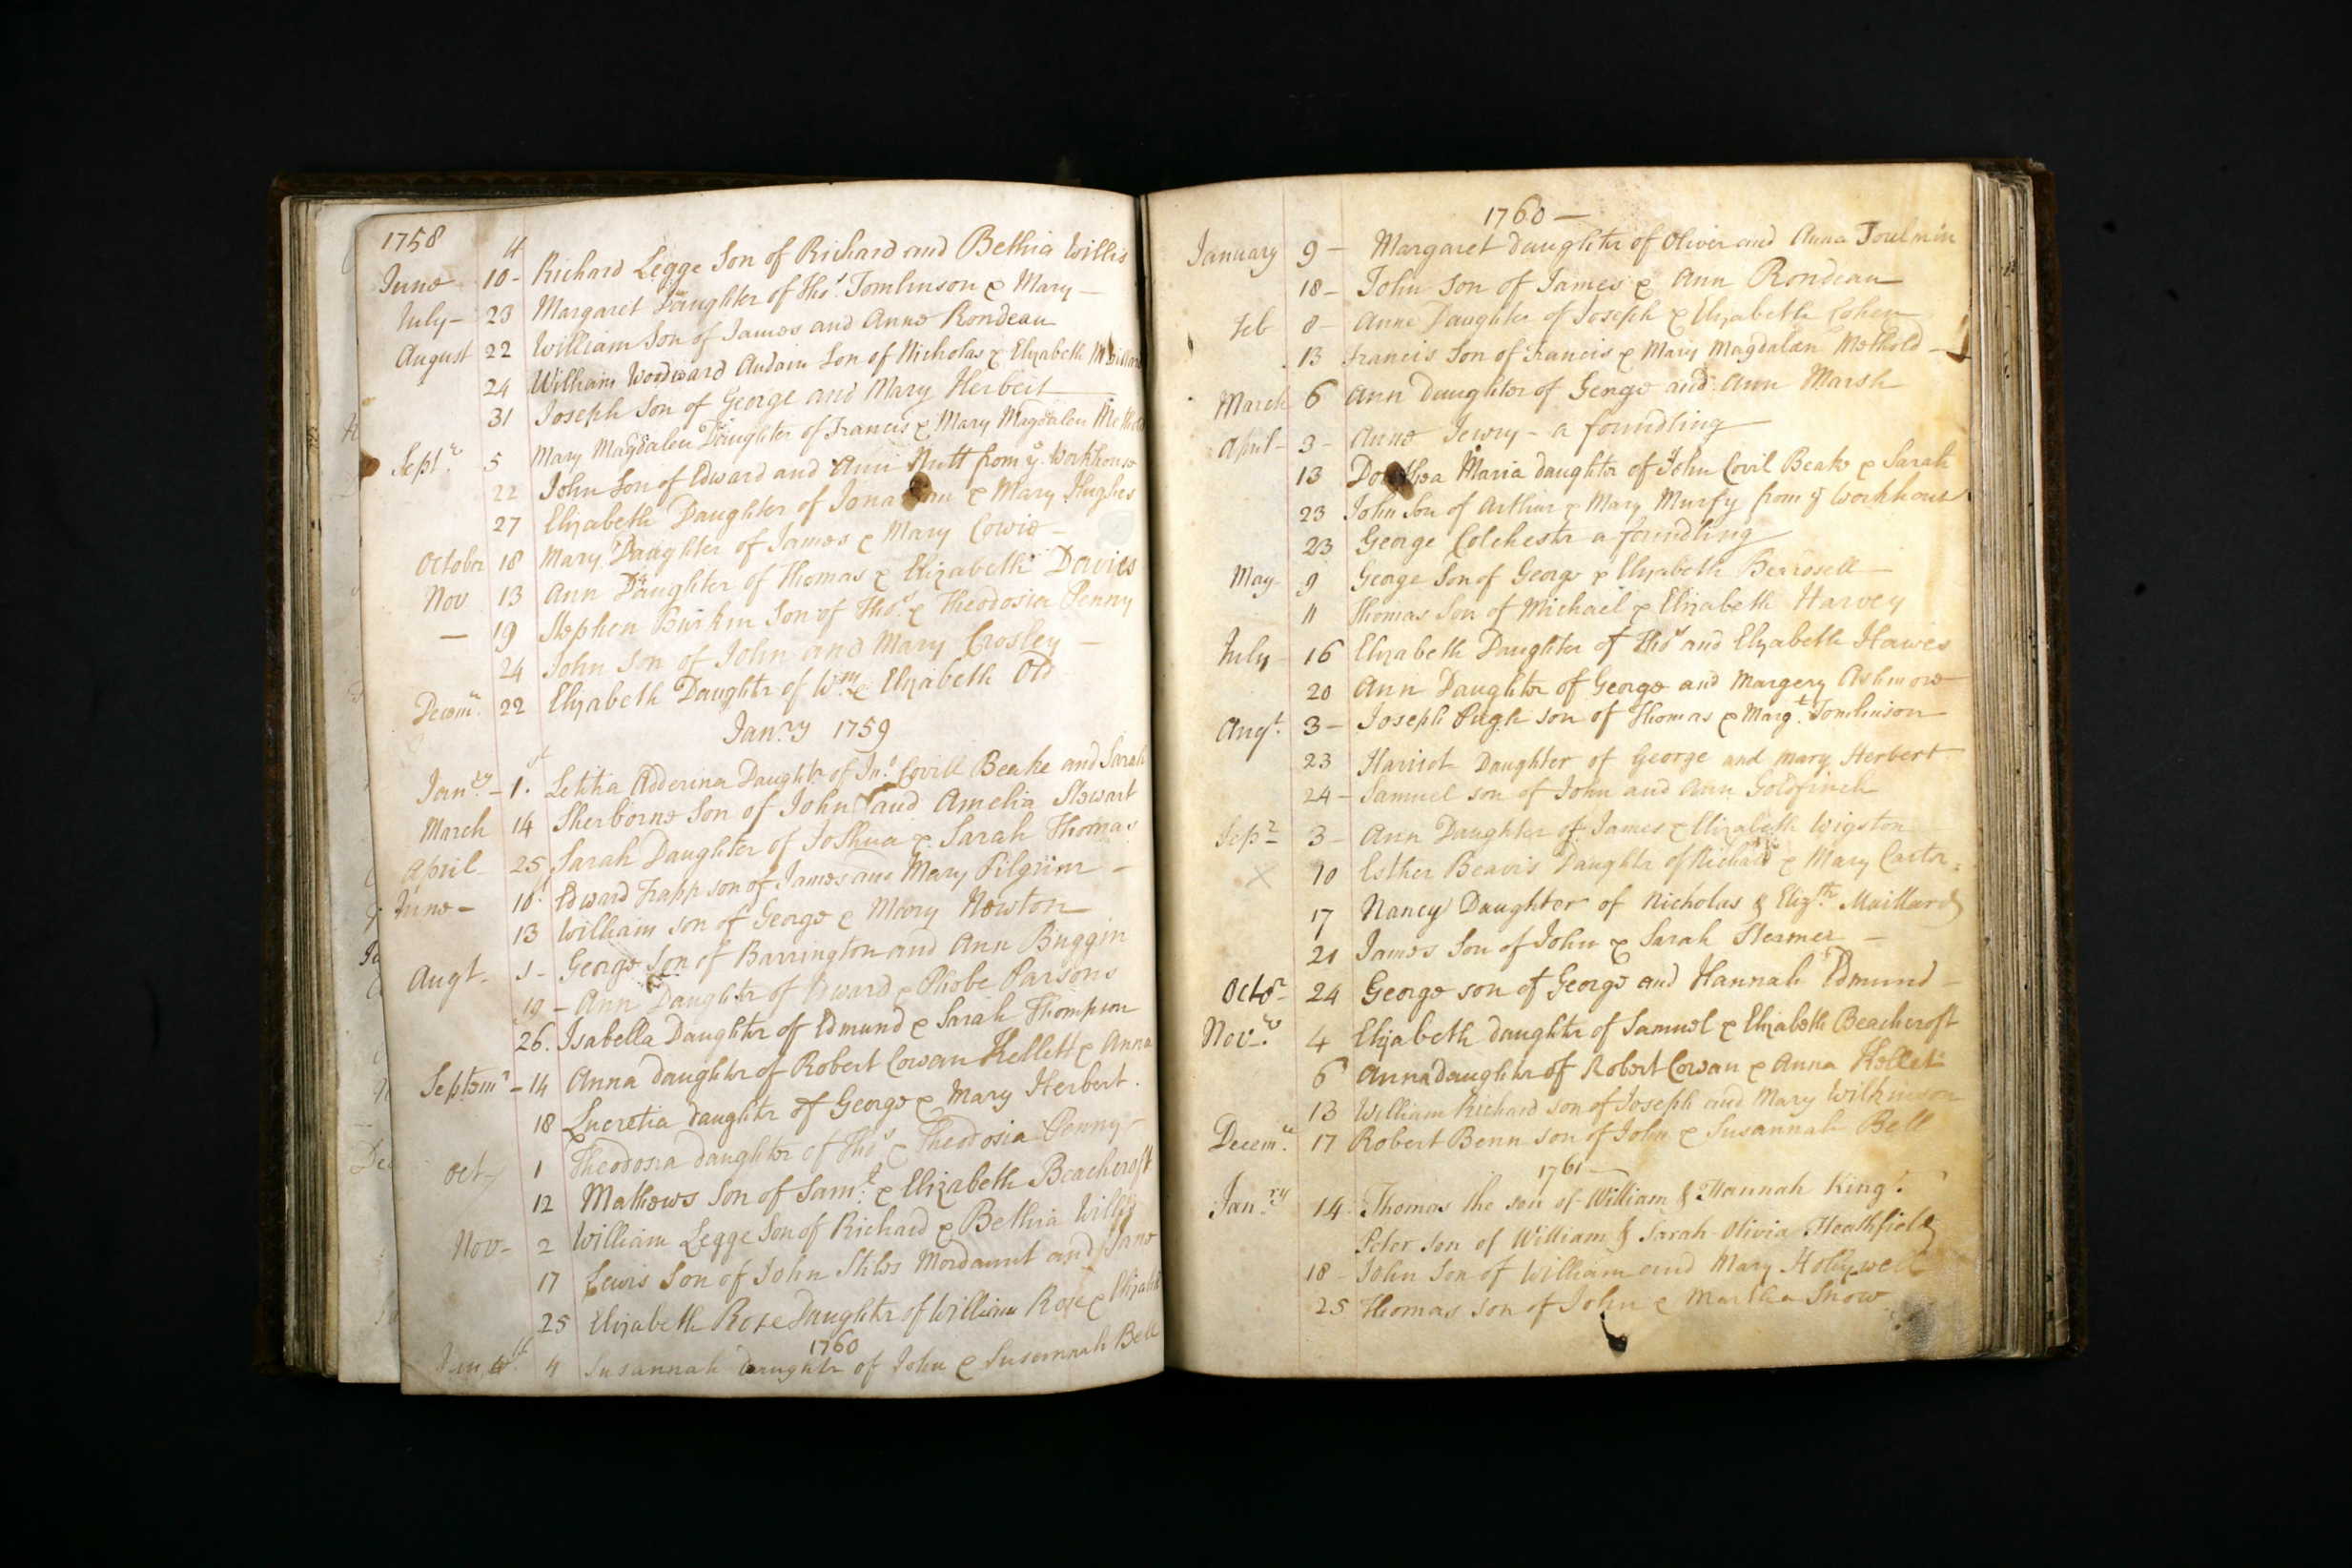 1758
4
June 10 - Richard Legge Son of Richard and Bethia Willis
July - 23 Margaret Daughter of Thos. Tomlinson & Mary -
August 22 William Son of James and Anne Rondeau
24 William Woodward Audain Son of Nicholas & Elizabeth
31 Joseph Son of George and Mary Herbert
Septr. 5 Mary Magdalen Daughter of Francis & Mary Magdalen
22 John Son of Edward and Ann Nutt from ye. Workhouse
27 Elizabeth Daughter of & Mary Hughes
October 18 Mary Daughter of James & Mary Cowie -
Nov 13 Ann Daughter of Thomas & Elizabeth Davies
- 19 Stephen Burkin Son of Thos. & Theodosia Penny
24 John Son of John and Mary Crosley -
Decemr. 22 Elizabeth Daughtr of Wm. & Elizabeth Old
Janry 1759
Janry. - 1st. Letitia Adderina Daughtr of Jno. Covill Beake and Sarah
March 14 Sherborne Son of John and Amelia Stewart
April - 25 Sarah Daughter of Joshua & Sarah Thomas
June - 10 Edward Trapp son of James and Mary Pilgrim -
13 William son of George & Mary Newton
Augt. 1 - George Son of Barrington and Ann Buggin
19 - Ann Daughter of Edward & Phobe Parsons
26. Isabella Daughter of Edmund & Sarah Thompson
Septemr - 14 Anna daughter of Robert Cowan Kellett & Anna
18 Lucretia daughtr of George & Mary Herbert.
Oct - 1 Theodosia daughter of Thos & Theodosia Penny -
12 Mathews Son of Saml. & Elizabeth Beachcroft
Nov - 2 William Legge Son of Richard & Bethia Willis
17 Lewis Son of John Stiles Mordaunt and Jane
25 Elizabeth Rose Daughtr of William Rose & Elizabeth
1760
4 Susannah Daughtr of John & Susannah Bell
1760 -
January 9 - Margaret daughter of Oliver and Anna Toulmin
18 - John Son of James & Ann Rondeau
Feb 8 - Anne Daughter of Joseph & Elizabeth Cohen
13 Francis Son of Francis & Mary Magdalen Methold -
March 6 Ann daughter of George and Ann Marsh
April - 3 - Anne Jewry - a foundling
13 Maria daughtr of John Covil Beake & Sarah
23 John Son of Arthur & Mary Murfy from ye Workhouse
23 George Colchestr a foundling
May - 9 George Son of George & Elizabeth
11 Thomas Son of Michael & Elizabeth Harvey
July 16 Elizabeth Daughter of Thos and Elizabeth Hawes
20 Ann Daughter of George and Margery Ashmore
Augt. 3 - Joseph Pugh son of Thomas & Margt. Tomlinson
23 Harriot Daughter of George and Mary Herbert
24 - Samuel son of John and Ann Goldfinch
Sepr 3 - Ann Daughter of James & Elizabeth Wigston
X 10 Esther Beavis Daughtr of Richard & Mary Carter
17 Nancy Daughter of Nicholas & Elizth. Maillard
21 James Son of John & Sarah Stermer -
Octor 24 George son of George and Hannah Edmund -
Novr. 4 Elizabeth daughter of Samuel & Elizabeth Beachcroft
6 Anna daughter of Robert Cowan & Anna Kellet
13 William Richard son of Joseph and Mary Wilkinson
Decemr. 17 Robert Benn son of John & Susannah Bell
1761 -
Janry. 14 Thomas the son of William & Hannah King.
Peter Son of William & Sarah Olivia Heathfield
18 - John Son of William and Mary Hollywell
25 Thomas Son of John & Martha Snow